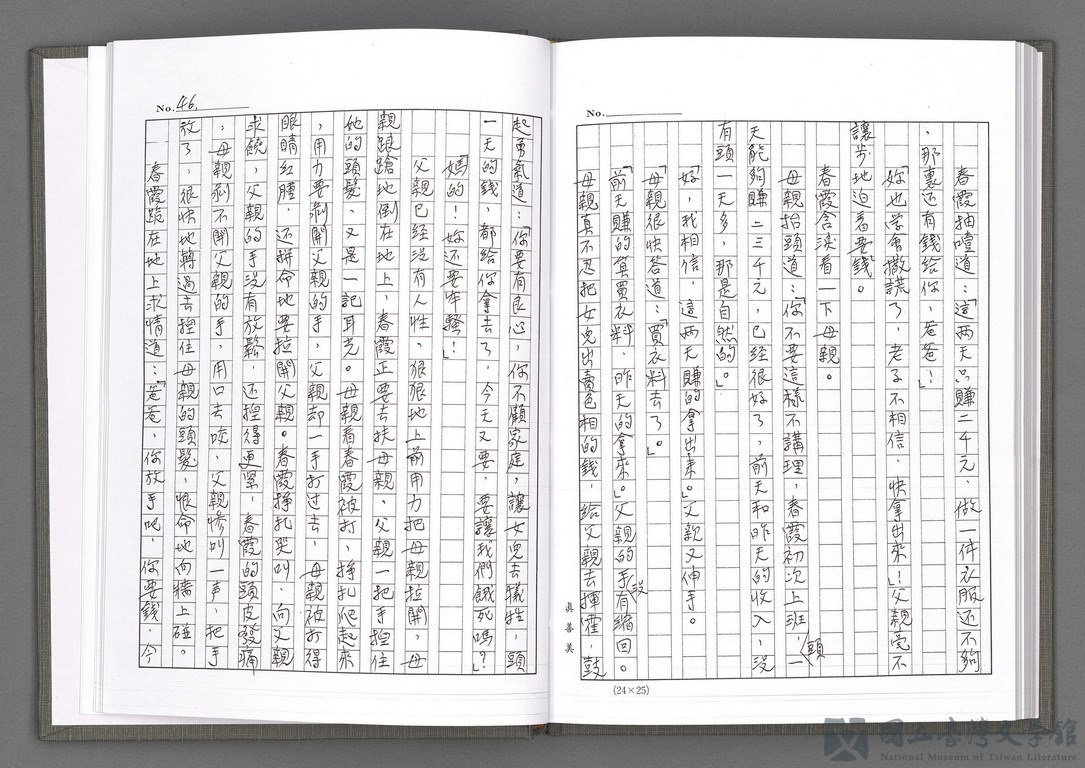 No.
春霞抽噎道：「這两天只賺二千元，做一件衣服还不夠
，那裏还有錢给你，爸爸！」
「妳也学會撒謊了，老子不相信，快拿出來！」父親毫不
讓步地迫着要錢。
春霞含淚看一下母親。
母親抬頭道：「你不要這樣不講理，春霞初次上班，頭一
天能夠賺二三千元，已经很好了，前天和昨天的收入，没
有頭一天多，那是自然的。」
「好，我相信，這两天賺的拿出來。」父親又伸手。
母親很快答道：「買衣料去了。」
「前天賺的算買衣料，昨天的拿來。」父親的手没有縮回。
母親真不忍把女兒出賣色相的錢，给父親去揮霍，鼓
真善美
(24×25)
No. 46.
起勇氣道：「你要有良心，你不顧家庭，讓女兒去犧牲，頭
一天的錢，都给你拿去了，今天又要，要讓我們餓死嗎？」
「媽的！妳还要牢騷！」
父親已经没有人性，狠狠地上前用力把母親拉開，母
親踉蹌地倒在地上，春霞正要去扶母親，父親一把手揑住
她的頭髮，又是一記耳光。母親看春霞被打，掙扎爬起來
，用力要剝開父親的手，父親却一手打过去，母親被打得
眼睛红腫，还拼命地要拉開父親。春霞掙扎哭叫，向父親
求饒，父親的手没有放鬆，还揑得更緊，春霞的頭皮發痛
，母親剝不開父親的手，用口去咬，父親惨叫一声，把手
放了，很快地轉過去揑住母親的頭髮，恨命地向牆上碰。
春霞跪在地上求情道：「爸爸，你放手吧，你要錢，今
國立臺灣文學館
National Museum of Taiwan Literature